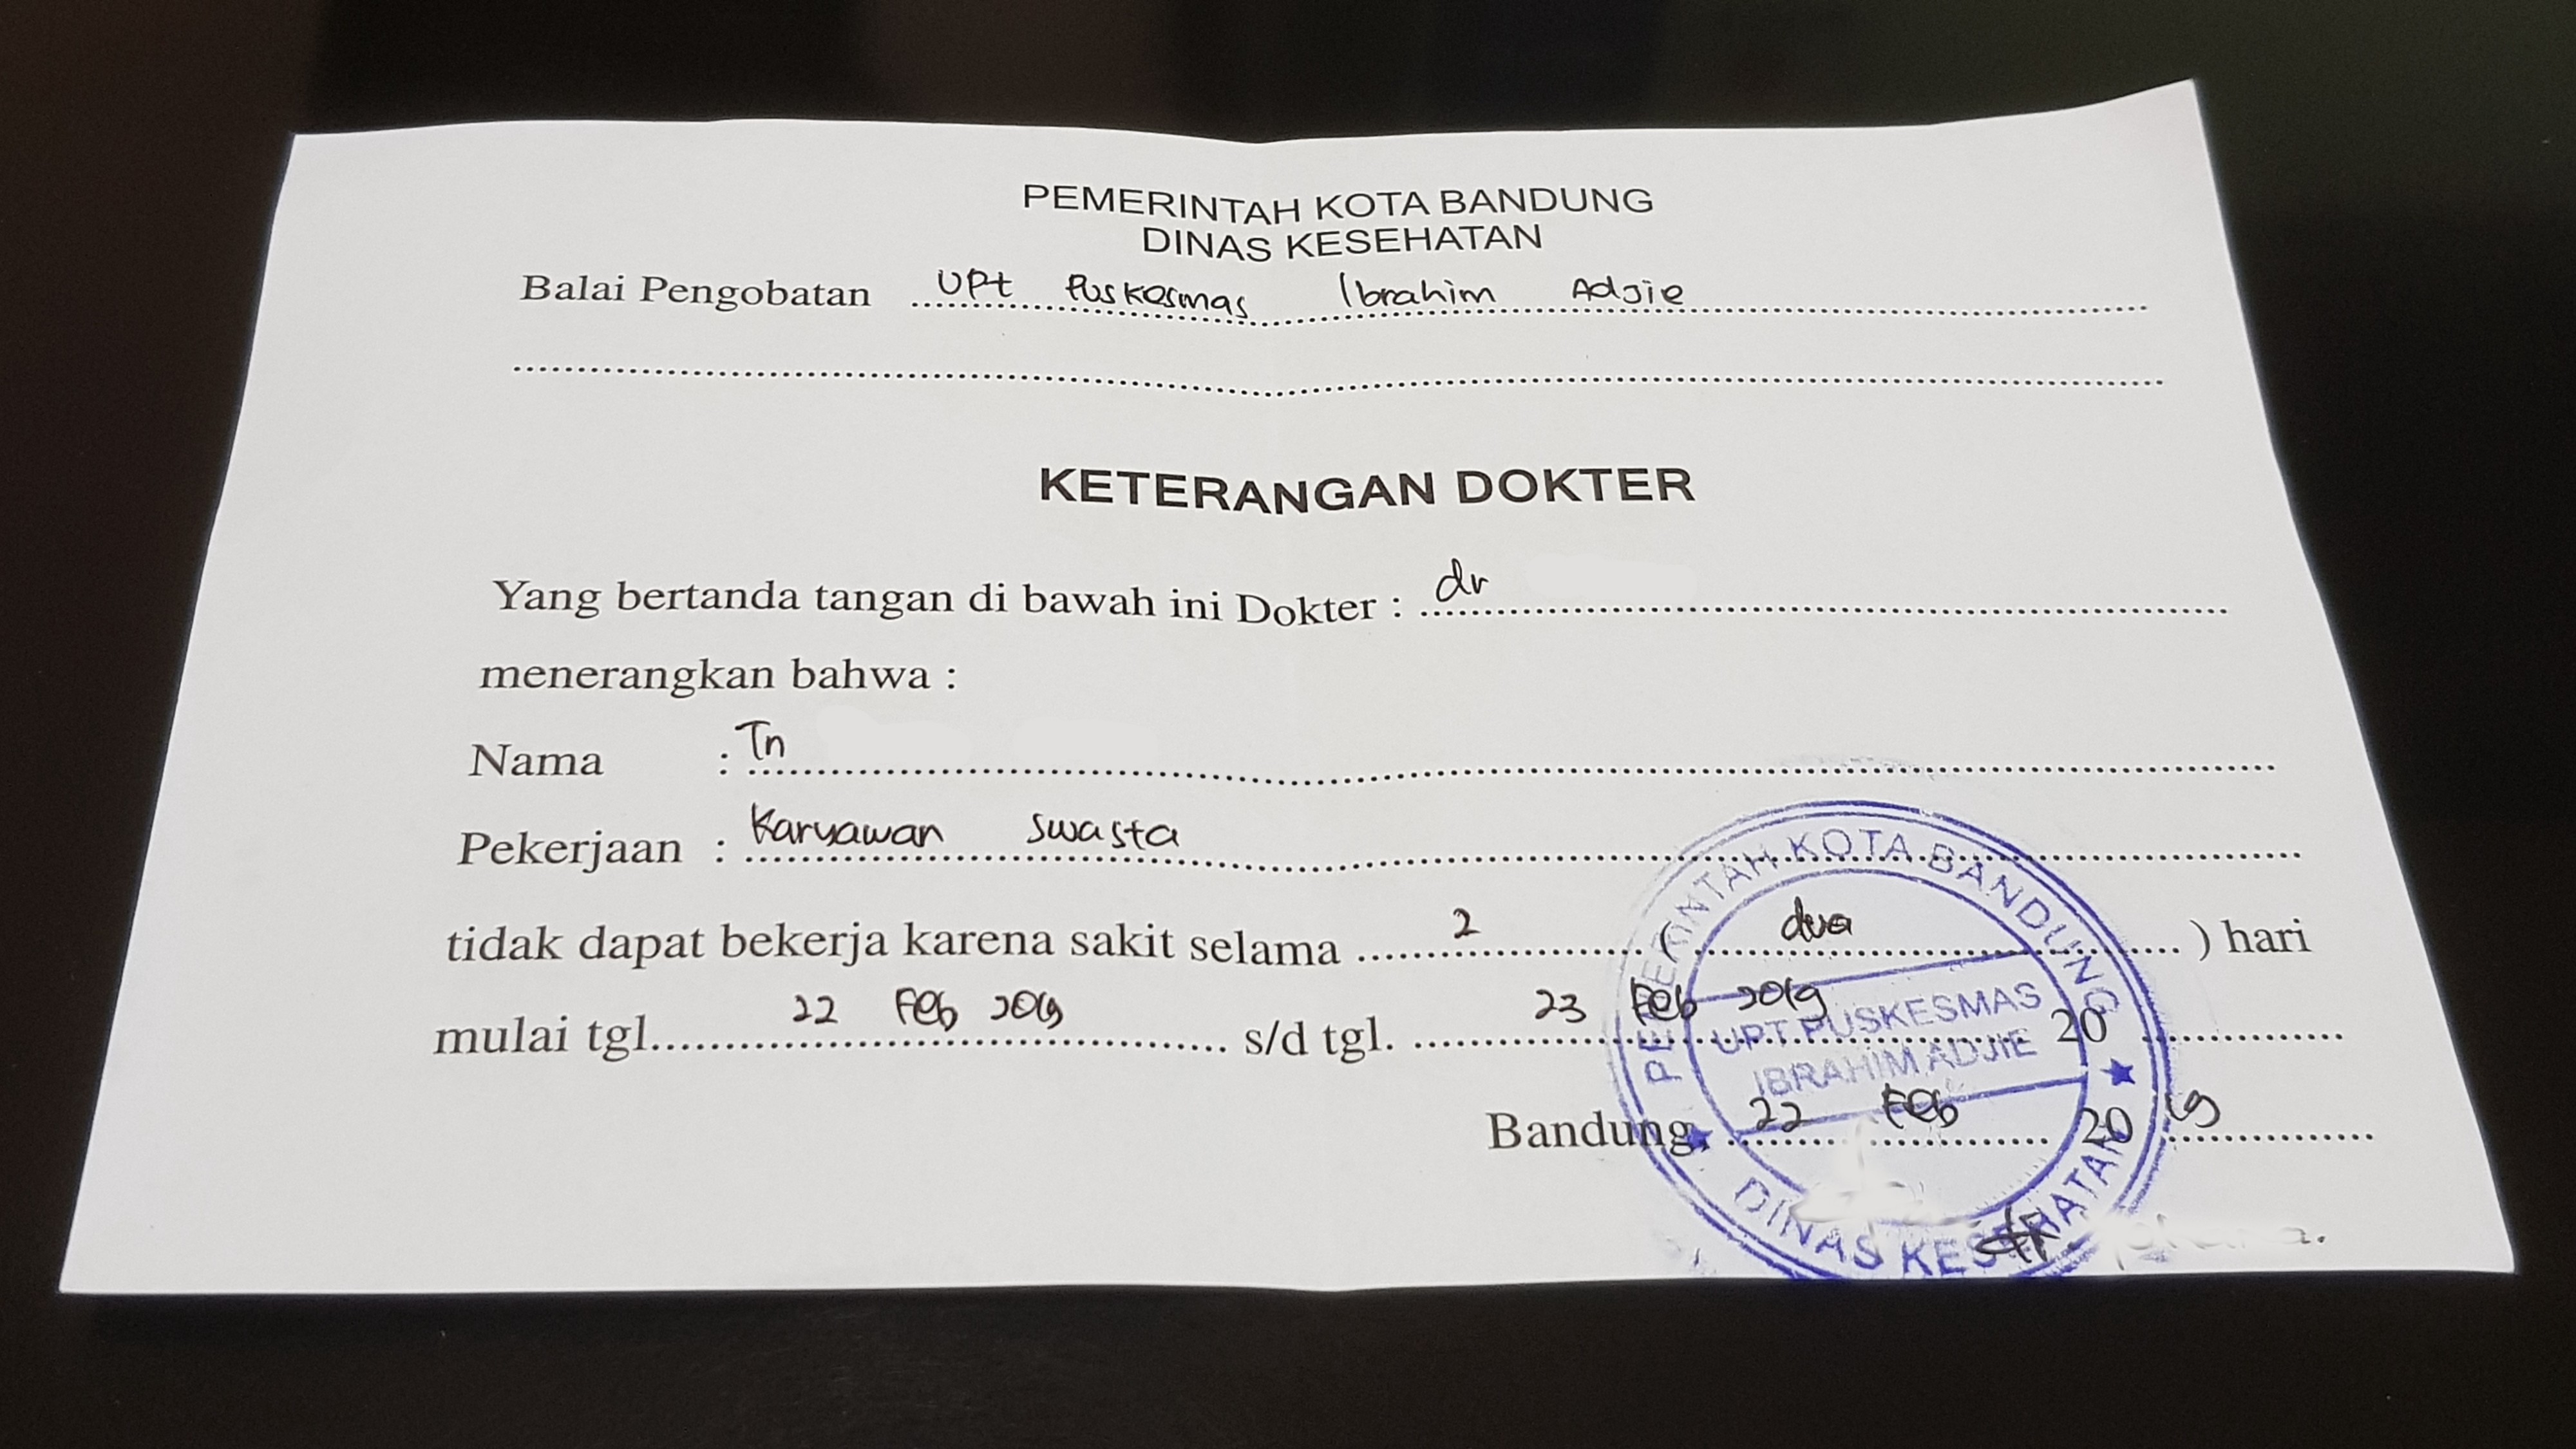 PEMERINTAH KOTA BANDUNG
DINAS KESEHATAN
Balai Pengobatan UPt Puskesmas Ibrahim Adjie
KETERANGAN DOKTER
Yang bertanda tangan di bawah ini Dokter : dr
menerangkan bahwa :
Nama : Tn
Pekerjaan : Karyawan Swasta
tidak dapat bekerja karena sakit selama 2 ( dua ) hari
mulai tgl. 22 Feb 2019 s/d tgl. 23 Feb 2019 20
Bandung, 22 Feb 2019
PEMERINTAH KOTA BANDUNG
UPT PUSKESMAS
IBRAHIM ADJIE
DINAS KESEHATAN